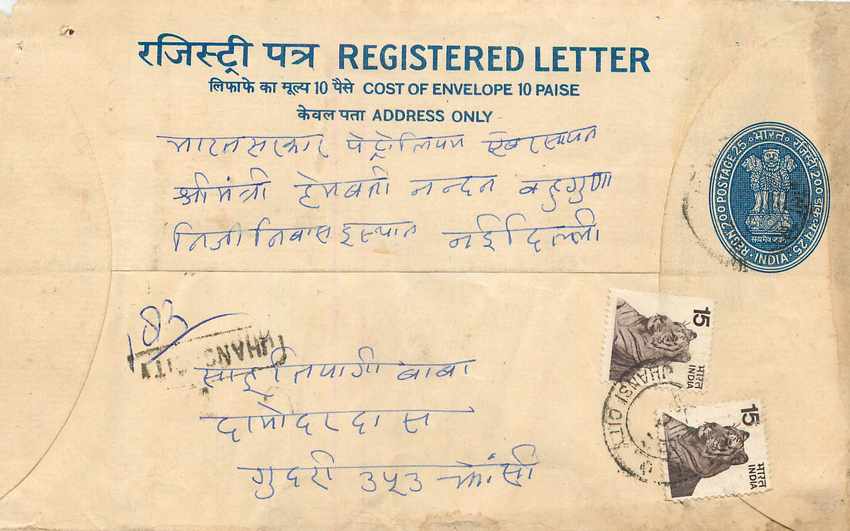 रजिस्ट्री पत्र REGISTERED LETTER
लिफाफे का मूल्य 10 पैसे COST OF ENVELOPE 10 PAISE
केवल पता ADDRESS ONLY
भारत सरकार पेट्रोलियम
श्रीमंत्री हेमवती नन्दन बहुगुणा
निजी निवास इस्थान नई दिल्ली
REGN. 200 POSTAGE 25 भारत रजिस्ट्री 200 डाकव्यय 25 INDIA
सत्यमेव जयते
183
JHANSI CITY
बाबा
दामोदर दास
गुदरी ३५३ झांसी
15
भारत
INDIA
JHANSI CITY
15
भारत
INDIA